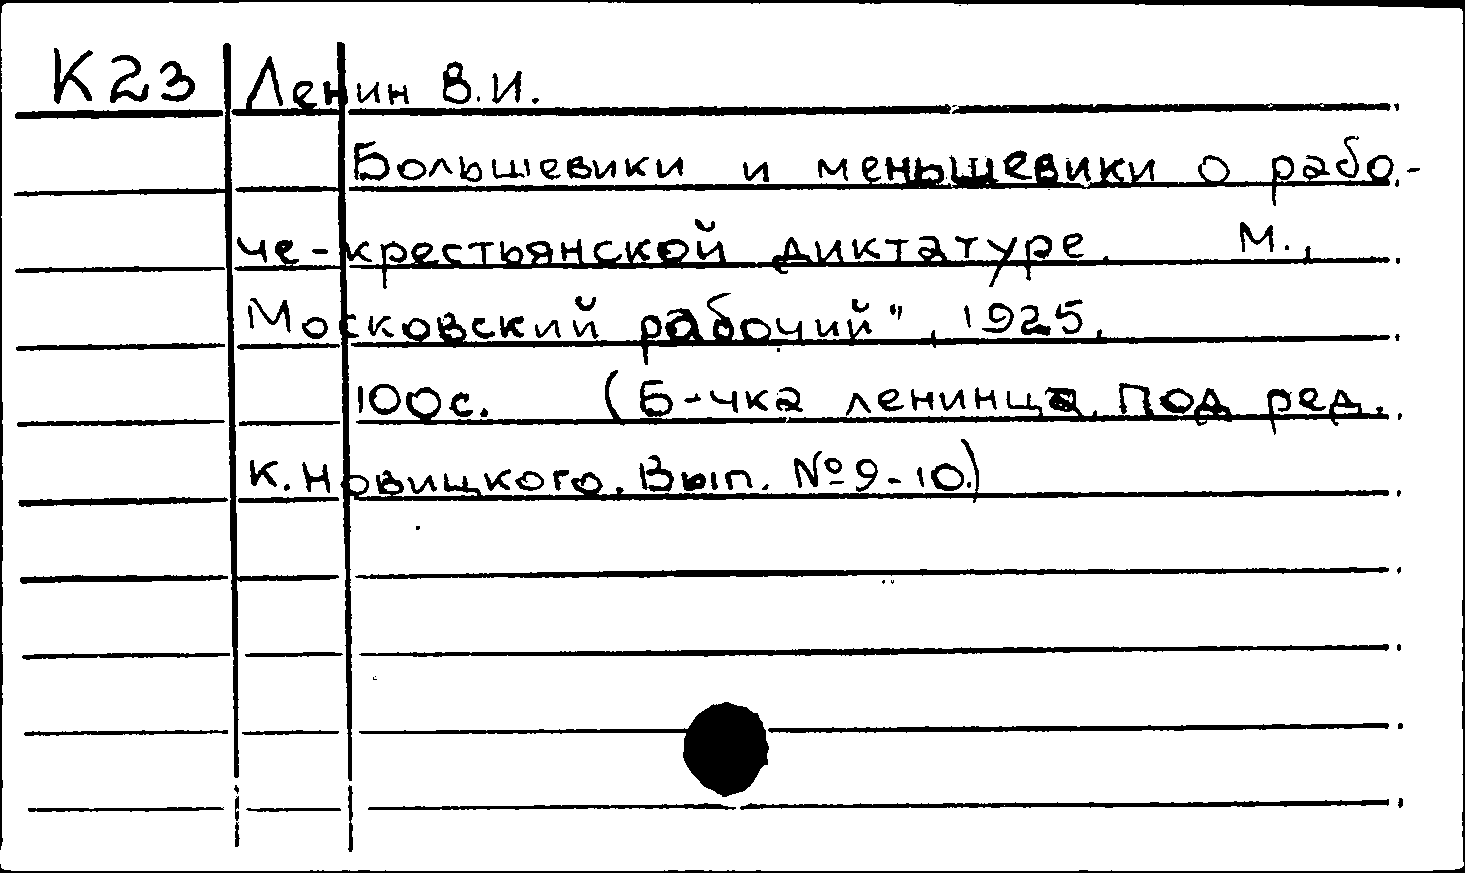 К23 Ленин В.И.
Большевики и меньшевики о рабо-
че-крестьянской диктатуре. М.,
Московский рабочий", 1925.
100с. (Б-чка ленинца. Под ред.
К. Новицкого. Вып. №9-10.)